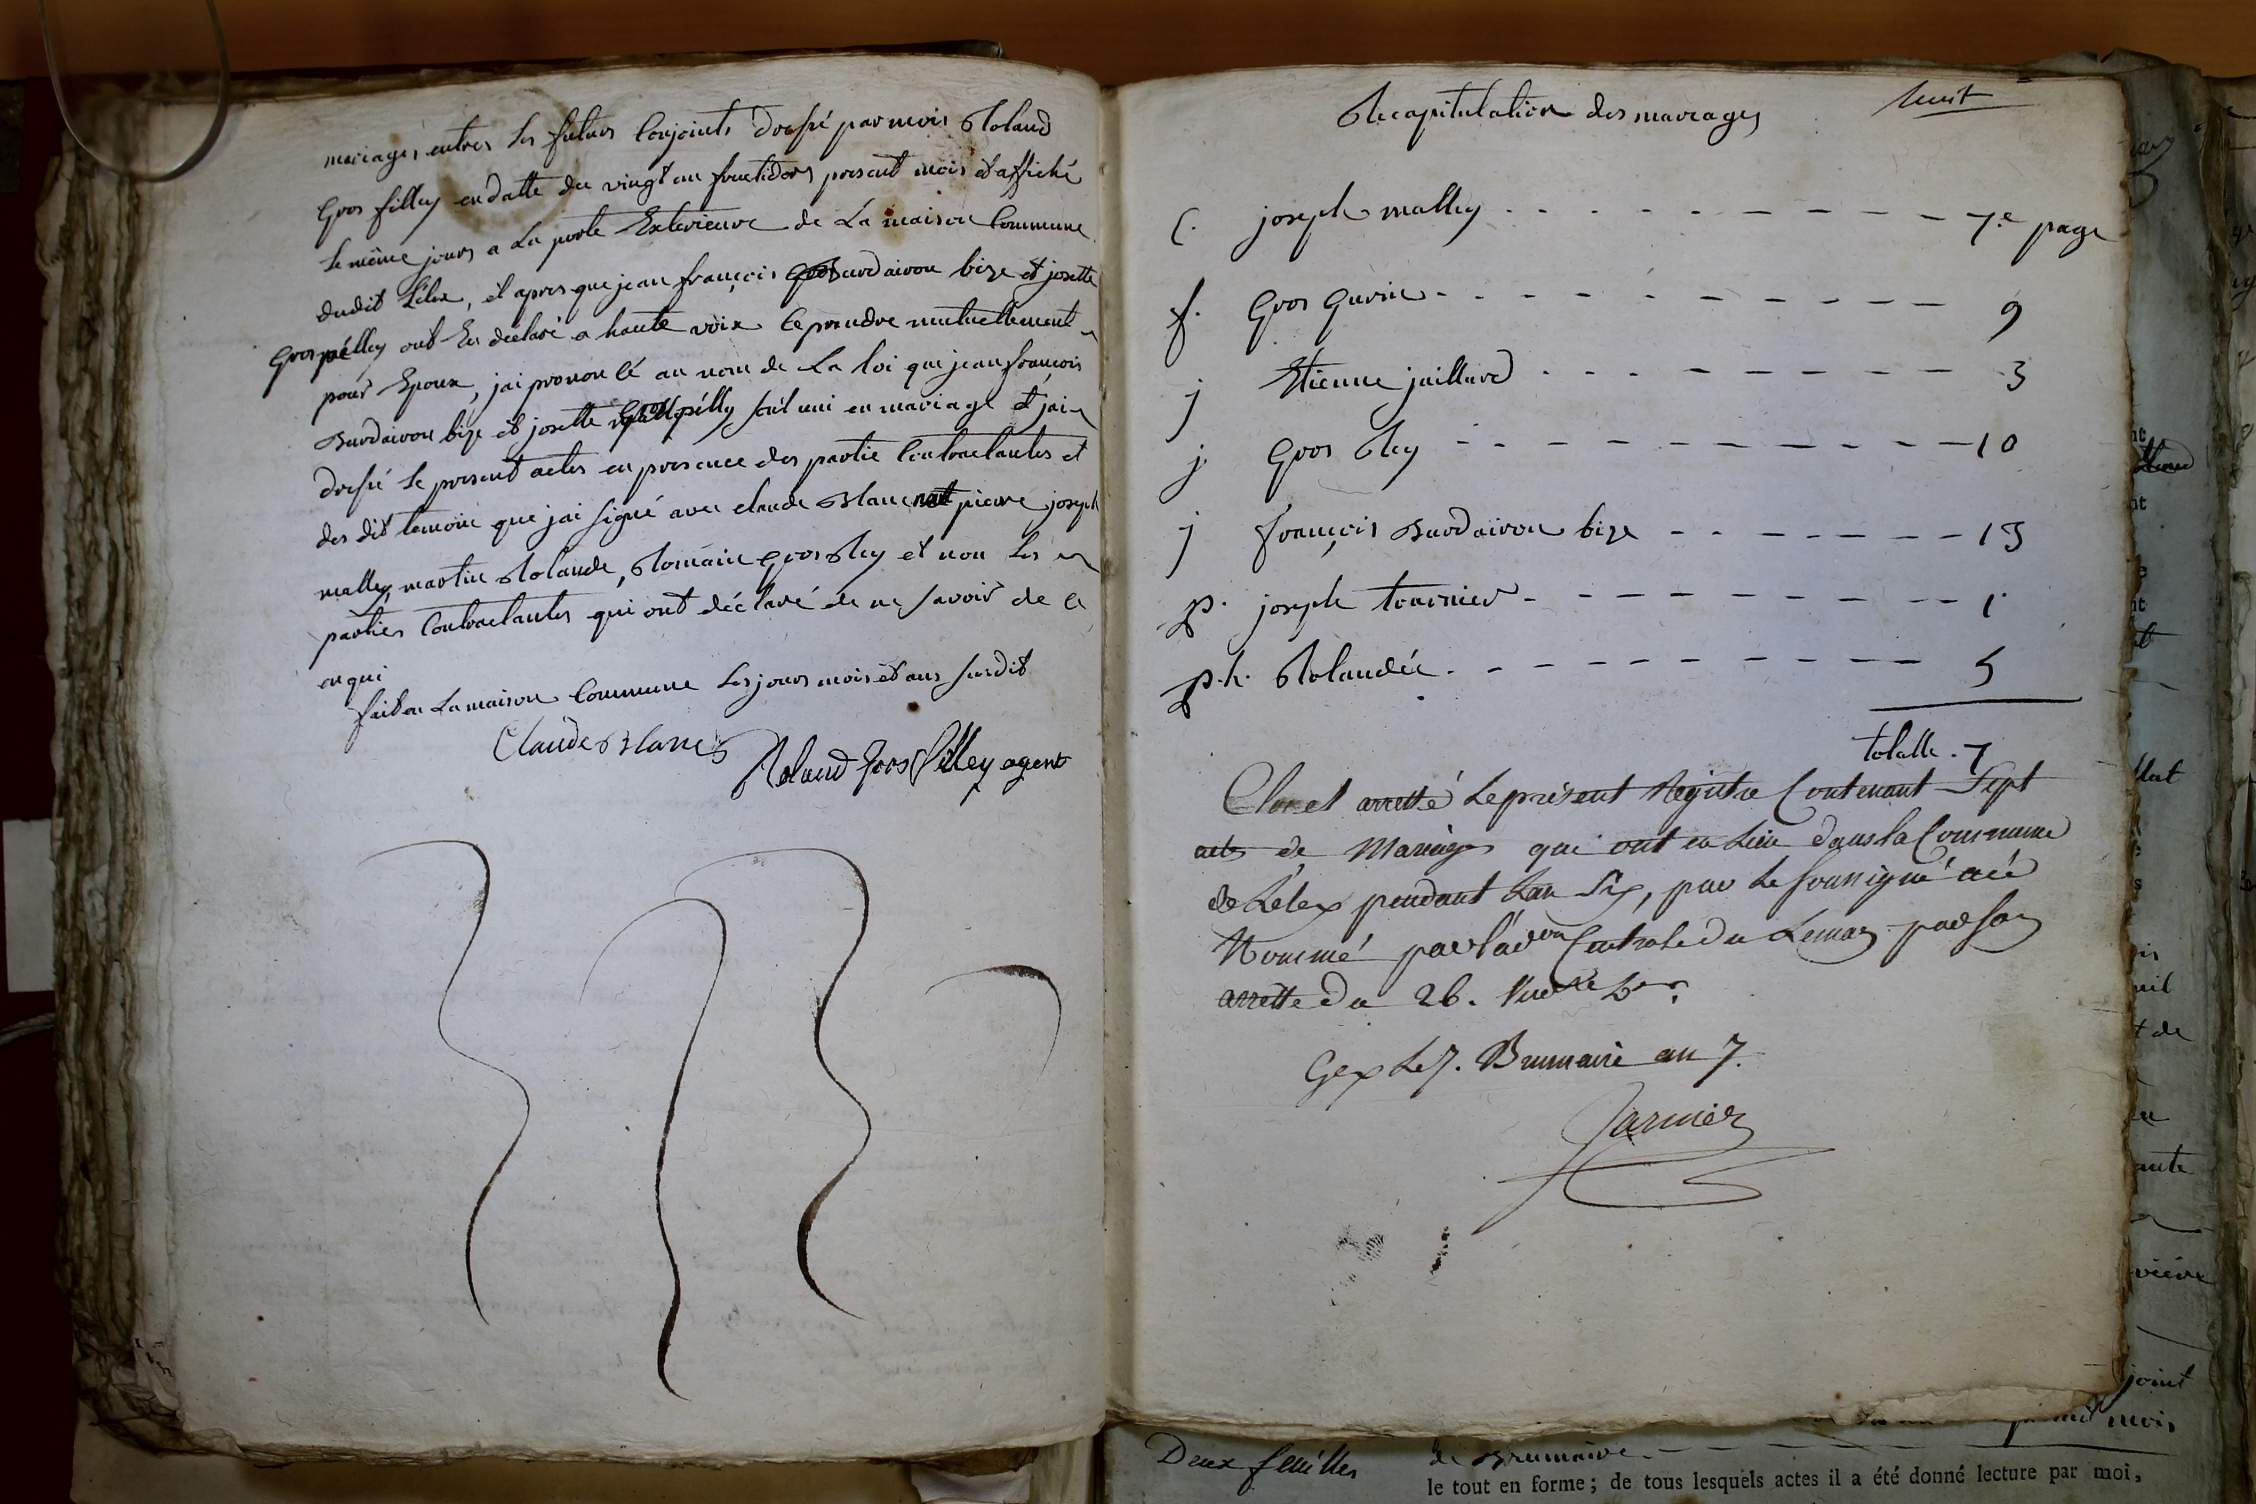 mariages entres les futurs Conjoints dressé par mois Roland
Gros filley en datte du vingt un fructidors present mois et affiché
le même jours a La porte Exterieure de La maison Commune
dudit Lélex, et apres que jean françois burdairon bize et josette
Grospélley ont Eu déclaré a haute voix Ce prendre mutuellement
pour Epoux, jai prononcé au nom de La loi que jean françois
Burdairon bize et josette Grospélly sont uni en mariage et jai
dressé le present actes en presence des partie Contractantes et
des dit temoin que jai signé avec claude Blanc pierre joseph
malley, martin Rolande, Romain gros Rey et non les
parties Contractantes qui ont déclaré de ne savoir de ce
enqui
fait en La maison Commune Les jours mois et ans susdit
Claude Blanc
Roland Gros Filley agent
Recapitulation des mariages
huit
C. joseph malley - - - - - - - - - 7.e page
f. Gros Gurin - - - - - - - - - - 9
j Etienne jaillard - - - - - - - - - 3
j. Gros Rey - - - - - - - - - - 10
j françois Burdairon bize - - - - - - - 13
p. joseph tournier - - - - - - - - - 1.
p.h. Rolandéz - - - - - - - - - - 5
totalle . 7
Clos et arretté Le présent Registre Contenant Sept
actes de Mariages qui ont eu Lieu dans la Commune
de Lélex pendant Lan Six, par Le soussigné
Nommé par l'adon Centrale du Leman par son
arretté du 26. Vendre Der.
Gex Le 7. Brumaire an 7.
Deux feuilles
de Brumaire
le tout en forme ; de tous lesquels actes il a été donné lecture par moi,